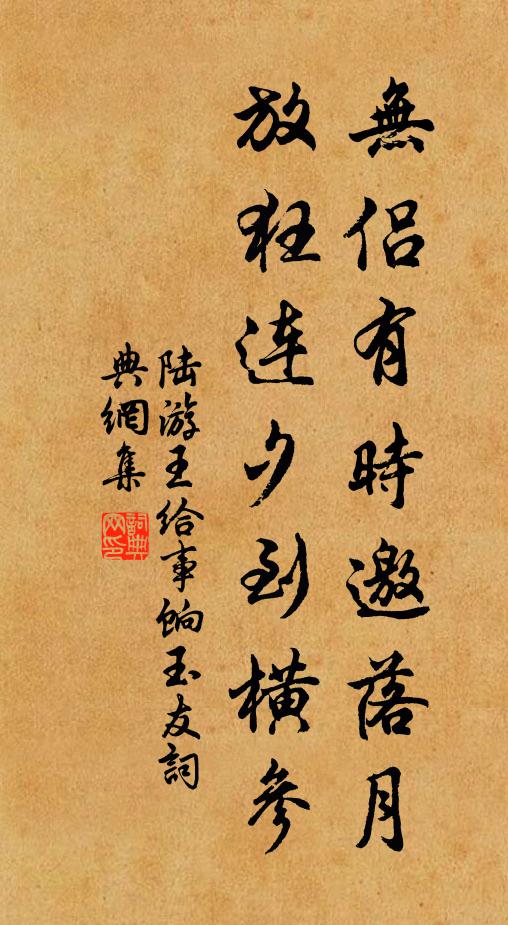 無侶有時邀落月
放狂連夕到橫參
陸游王給事餉玉友詞
典網集
詞典
网印